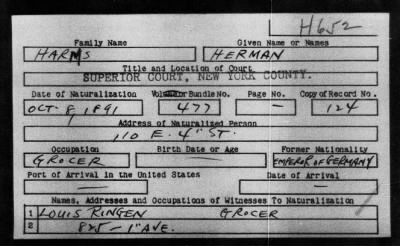 H652
Family Name Given Name or Names
HARMS HERMAN
Title and Location of Court
SUPERIOR COURT, NEW YORK COUNTY.
Date of Naturalization Bundle No. Page No. Copy of Record No.
OCT. 8, 1891 477 — 124
Address of Naturalized Person
110 E. 4" ST.
Occupation Birth Date or Age Former Nationality
GROCER — EMPEROR OF GERMANY
Port of Arrival in the United States Date of Arrival
— —
Names, Addresses and Occupations of Witnesses To Naturalization
1 LOUIS RINGEN GROCER
2 825 - 1" AVE.